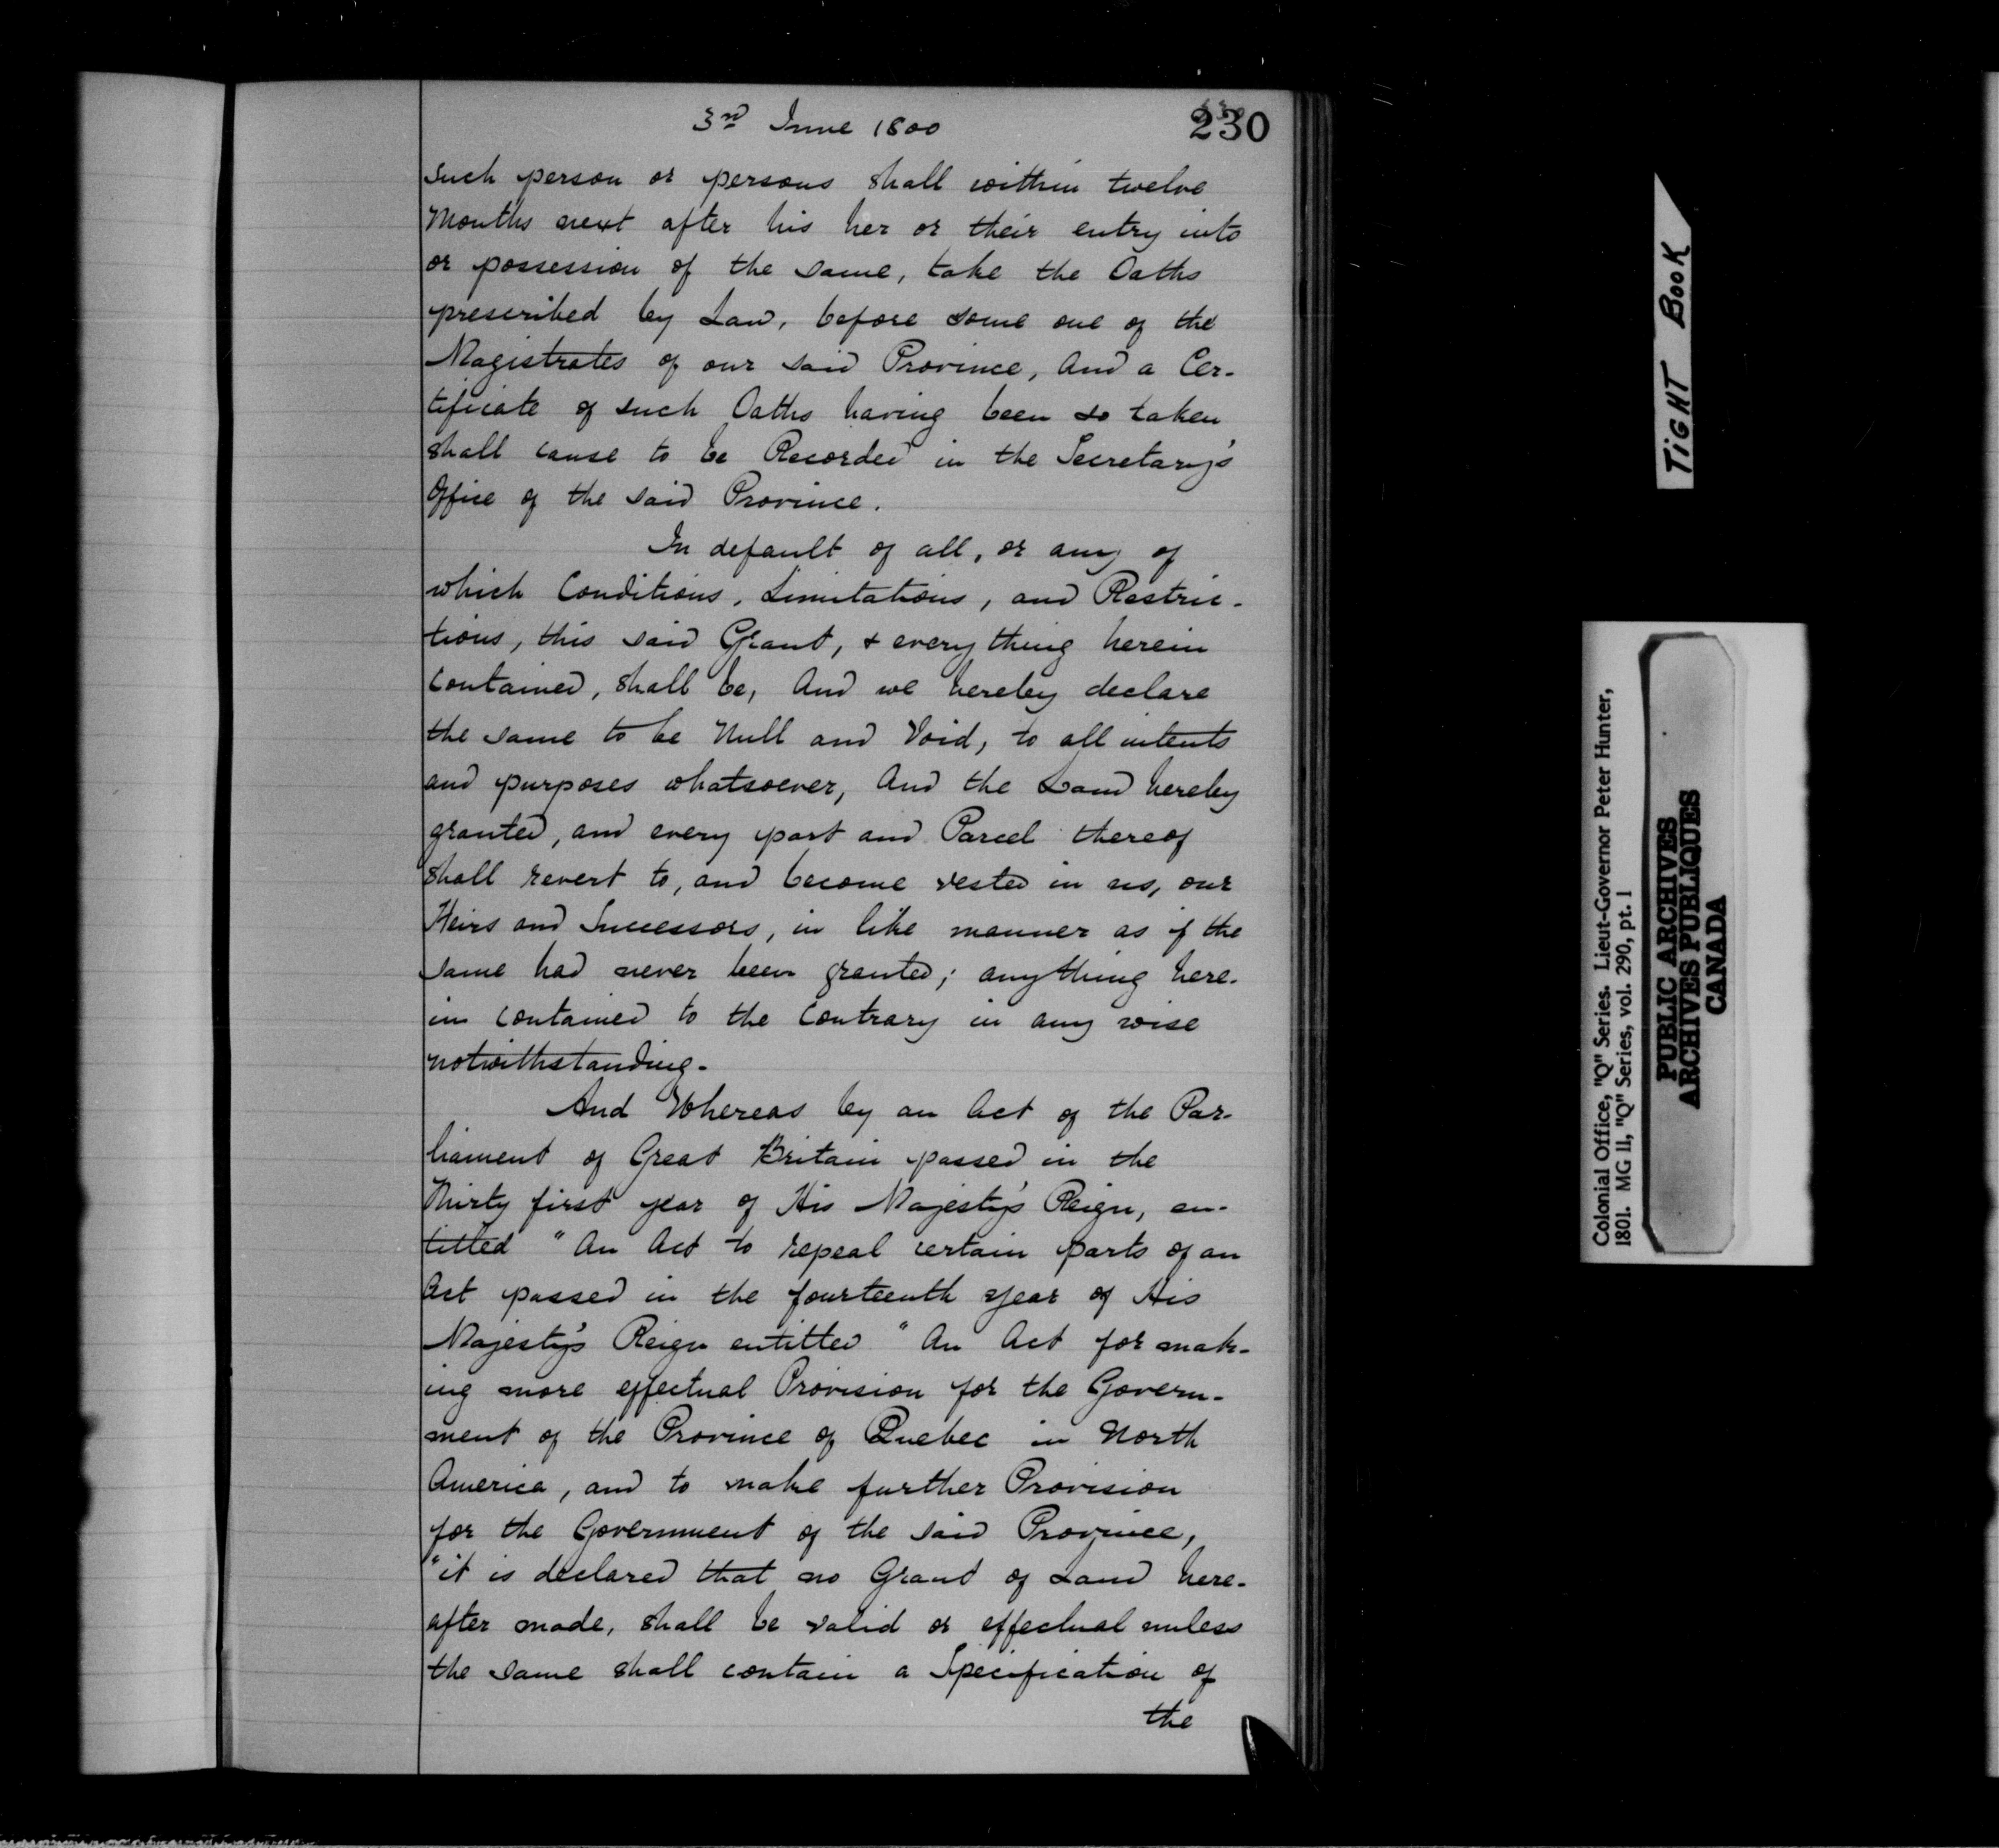 3rd June 1800
230
such person or persons shall within twelve
Months next after his her or their entry into
or possession of the same, take the Oaths
prescribed by Law, before some one of the
Magistrates of our said Province, And a Cer-
tificate of such Oaths having been so taken
shall cause to be Recorded in the Secretary's
Office of the said Province.
In default of all, or any of
which Conditions, Limitations, and Restric-
tions, this said Grant, & every thing herein
contained, shall be, And we hereby declare
the same to be Null and Void, to all intents
and purposes whatsoever, And the Land hereby
granted, and every part and Parcel thereof
shall revert to, and become vested in us, our
Heirs and Successors, in like manner as if the
same had never been granted; anything here-
in contained to the contrary in any wise
notwithstanding.
And Whereas by an Act of the Par-
liament of Great Britain passed in the
Thirty first year of His Majesty's Reign, en-
titled "An Act to repeal certain parts of an
Act passed in the fourteenth year of His
Majesty's Reign entitled "An Act for mak-
ing more effectual Provision for the Govern-
ment of the Province of Quebec in North
America, and to make further Provision
for the Government of the said Province,
"it is declared that no Grant of Land here-
after made, shall be valid or effectual unless
the same shall contain a Specification of
the
TIGHT BOOK
Colonial Office, "Q" Series. Lieut-Governor Peter Hunter,
1801. MG 11, "Q" Series, vol. 290, pt. 1
PUBLIC ARCHIVES
ARCHIVES PUBLIQUES
CANADA